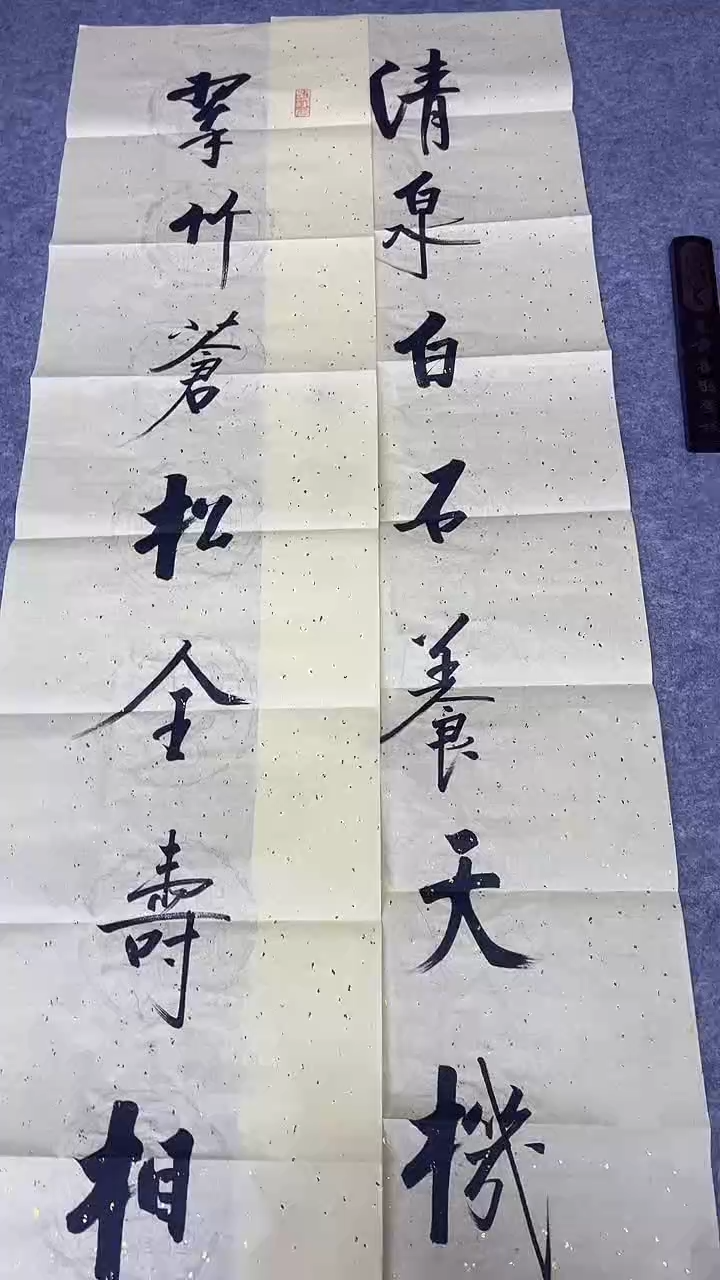 清泉白石養天機
翠竹蒼松全壽相